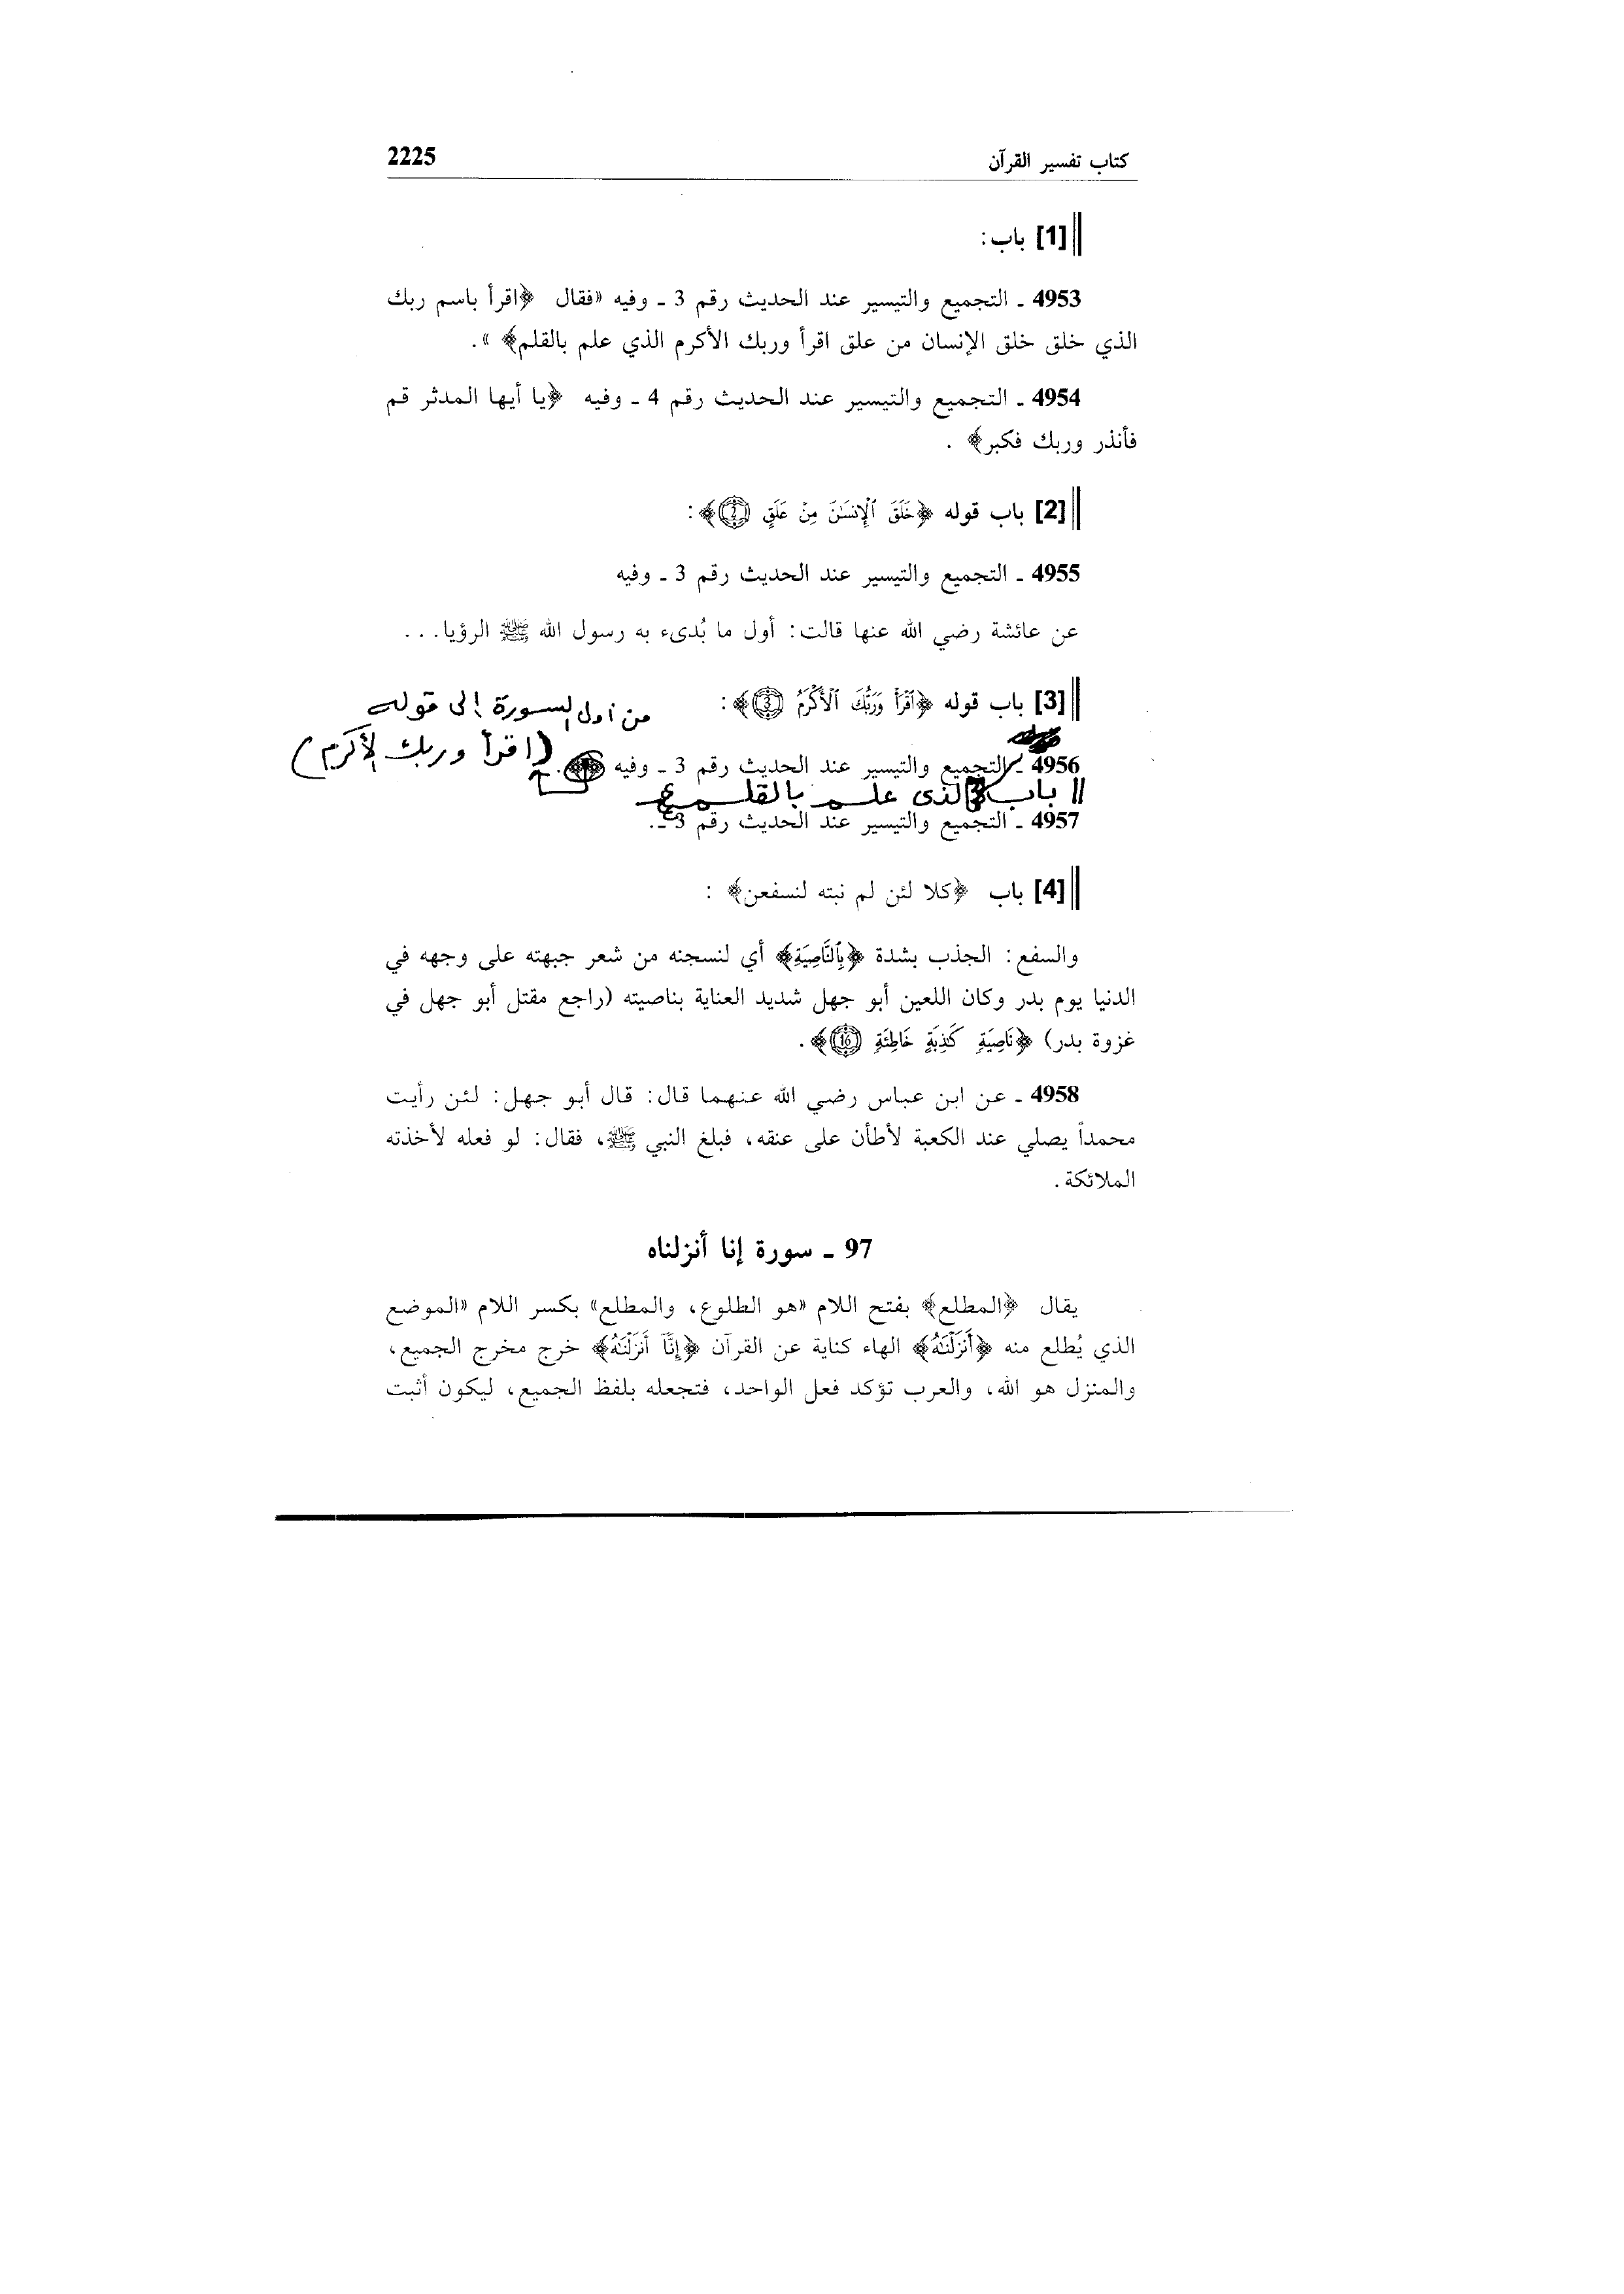 كتاب تفسير القرآن 2225
[1] باب:
4953 ـ التجميع والتيسير عند الحديث رقم 3 ـ وفيه «فقال ﴿اقرأ باسم ربك
الذي خلق خلق الإنسان من علق اقرأ وربك الأكرم الذي علم بالقلم﴾ ».
4954 ـ التجميع والتيسير عند الحديث رقم 4 ـ وفيه ﴿يا أيها المدثر قم
فأنذر وربك فكبر﴾ .
[2] باب قوله ﴿خَلَقَ ٱلْإِنسَـٰنَ مِنْ عَلَقٍ (2)﴾:
4955 ـ التجميع والتيسير عند الحديث رقم 3 ـ وفيه
عن عائشة رضي الله عنها قالت: أول ما بُدىء به رسول الله ﷺ الرؤيا...
[3] باب قوله ﴿ٱقْرَأْ وَرَبُّكَ ٱلْأَكْرَمُ (3)﴾:
من أول السورة إلى قوله
4956 ـ التجميع والتيسير عند الحديث رقم 3 ـ وفيه
(اقرأ وربك الأكرم)
|| باب الذى علم بالقلم
4957 ـ التجميع والتيسير عند الحديث رقم 3 ـ.
[4] باب ﴿كلا لئن لم نبته لنسفعن﴾ :
والسفع: الجذب بشدة ﴿بِٱلنَّاصِيَةِ﴾ أي لنسجنه من شعر جبهته على وجهه في
الدنيا يوم بدر وكان اللعين أبو جهل شديد العناية بناصيته (راجع مقتل أبو جهل في
غزوة بدر) ﴿نَاصِيَةٍ كَـٰذِبَةٍ خَاطِئَةٍ (16)﴾.
4958 ـ عن ابن عباس رضي الله عنهما قال: قال أبو جهل: لئن رأيت
محمداً يصلي عند الكعبة لأطأن على عنقه، فبلغ النبي ﷺ، فقال: لو فعله لأخذته
الملائكة.
97 ـ سورة إنا أنزلناه
يقال ﴿المطلع﴾ بفتح اللام «هو الطلوع، والمطلع» بكسر اللام «الموضع
الذي يُطلع منه ﴿أَنزَلْنَـٰهُ﴾ الهاء كناية عن القرآن ﴿إِنَّآ أَنزَلْنَـٰهُ﴾ خرج مخرج الجميع،
والمنزل هو الله، والعرب تؤكد فعل الواحد، فتجعله بلفظ الجميع، ليكون أثبت